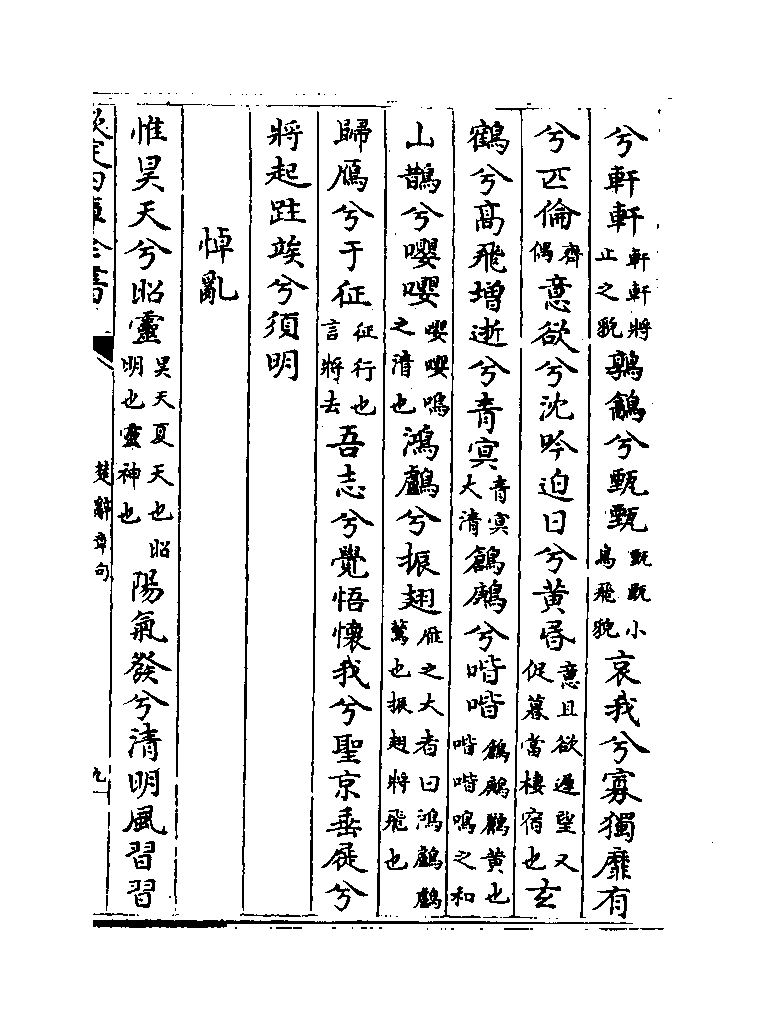 兮軒軒軒軒將止之貌鶉鵪兮甄甄甄甄小鳥飛貌哀我兮寡獨靡有
兮匹倫齊偶意欲兮沈吟迫日兮黄昏意且欲遲望又促暮當棲宿也玄
鶴兮高飛增逝兮青冥青冥大清鶬鶊兮喈喈鶬鶊鸝黄也喈喈鳴之和
山鵲兮嚶嚶嚶嚶鳴之清也鴻鸕兮振翅雁之大者曰鴻鸕鸕鶿也振翅將飛也
歸鴈兮于征征行也言將去吾志兮覺悟懷我兮聖京垂屣兮
將起跓竢兮須明
悼亂
惟昊天兮昭靈昊天夏天也昭明也靈神也陽氣發兮清明風習習
欽定四庫全書
楚辭章句
九